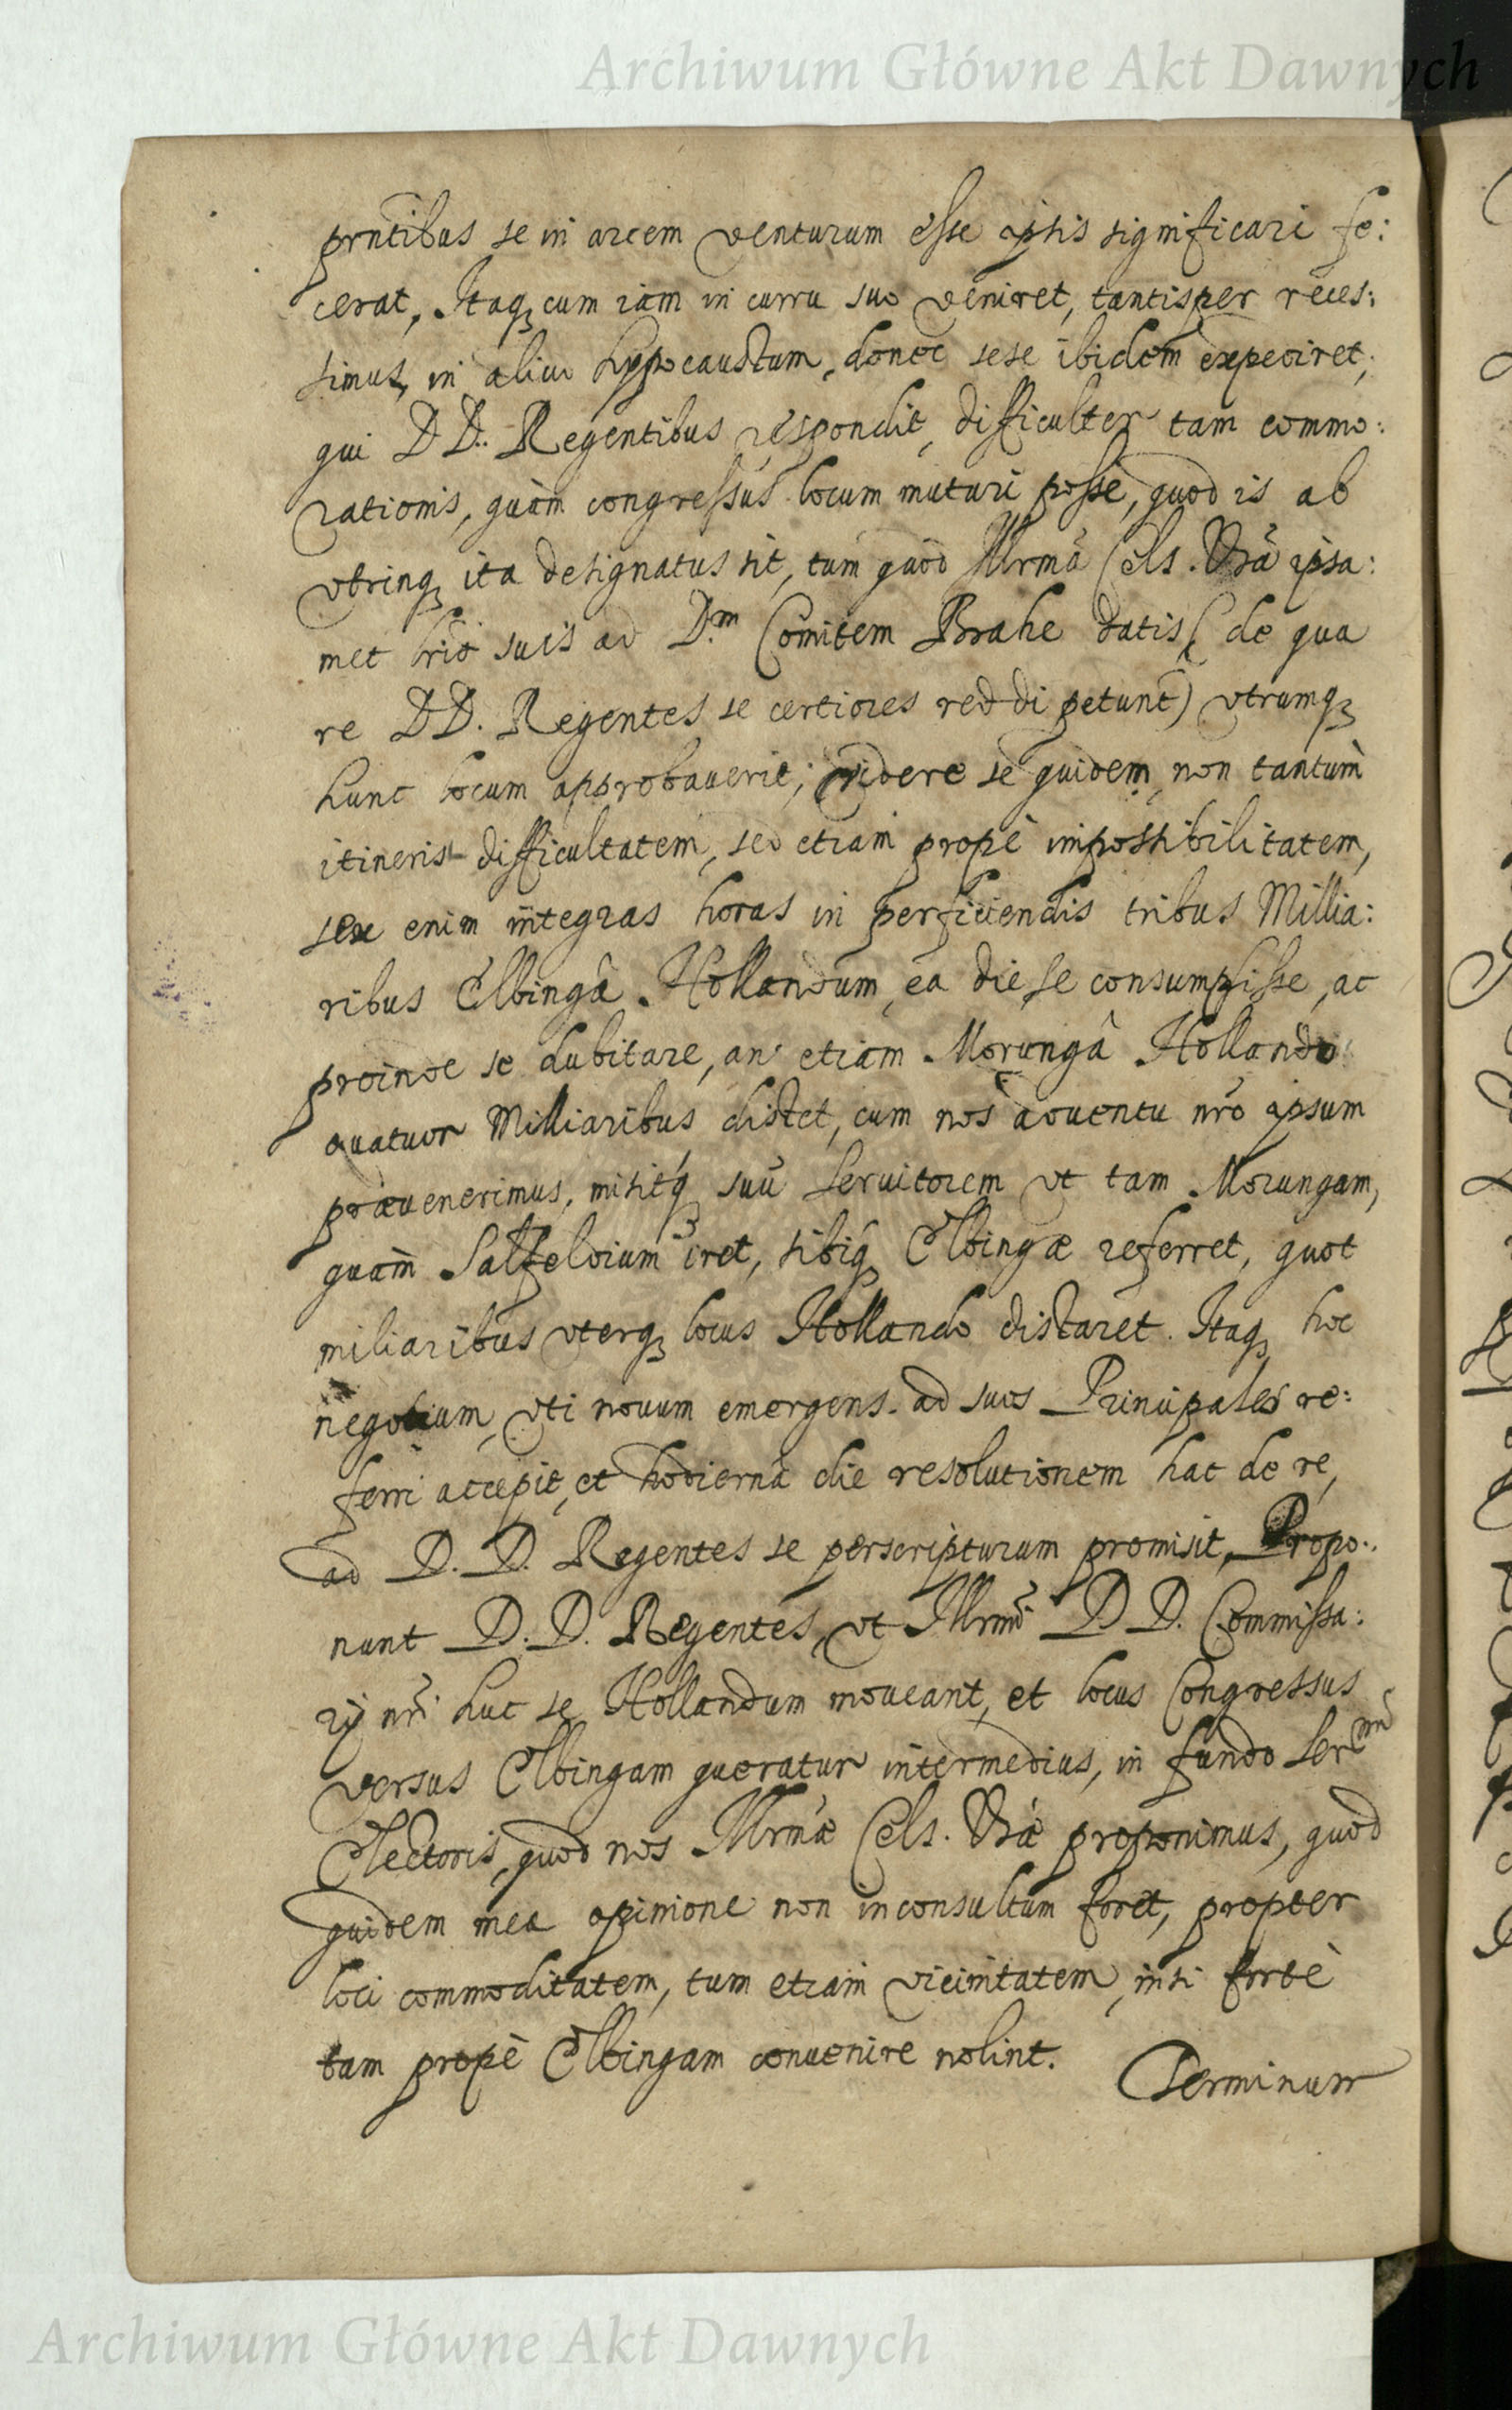 Archiwum Główne Akt Dawnych
prntibus se in arcem venturum esse ipsis significari fe:
cerat, Itaq; cum iam in curru suo veniret, tantisper reces:
simus, in aliud hypocaustum, donec sese ibidem expediret;
qui DD. Regentibus respondit, difficulter tam commo:
rationis, quàm congressus locum mutari posse, quod is ab
vtrinq; ita designatus sit, tum quòd Illrma Cels. Vra ipsa:
met lris suis ad D.m Comitem Brahe datis (de qua
re DD. Regentes se certiores reddi petunt) vtrumq;
hunc locum approbauerit; videre se quidem, non tantùm
itineris difficultatem, sed etiam propè impossibilitatem,
sex enim integras horas in perficiendis tribus Millia:
ribus Elbingâ Hollandum, ea die se consumpsisse, ac
proinde se dubitare, an etiam Morungâ Hollando
quatuor Milliaribus distet, cum nos aduentu nro ipsum
præuenerimus, misitq; suũ Seruitorem vt tam Morungam,
quàm Salfeldium iret, sibiq; Elbingæ referret, quot
miliaribus vterq; locus Hollando distaret. Itaq; hoc
negotium, vti nouum emergens ad suos Principales re:
ferri accepit, et hodiernâ die resolutionem hac de re,
ad D. D. Regentes se perscripturum promisit, Propo:
nunt D. D. Regentes, vt Illrmi DD. Commissa:
rij nri huc se Hollandum moueant, et locus Congressus
versus Elbingam quæratur intermedius, in fundo Sermi
Electoris, quod nos Illrmæ Cels. Vræ proponimus, quod
quidem mea opinione non inconsultum foret, propter
loci commoditatem, tum etiam vicinitatem, nisi fortè
tam propè Elbingam conuenire nolint.
Terminum
Archiwum Główne Akt Dawnych